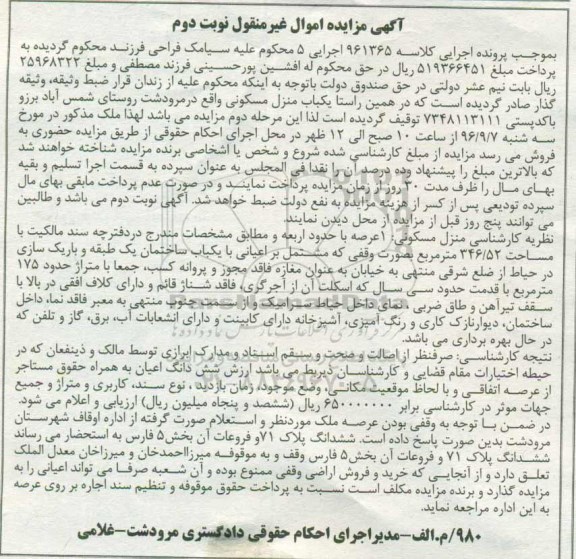 آگهی مزایده اموال غیرمنقول نوبت دوم
بموجب پرونده اجرایی کلاسه ۹۶۱۳۶۵ اجرایی ۵ محکوم علیه سیامک فراحی فرزند محکوم گردیده به
پرداخت مبلغ ۵۱۹۳۶۶۴۵۱ ریال در حق محکوم له افشین پورحسینی فرزند مصطفی و مبلغ ۲۵۹۶۸۳۲۲
ریال بابت نیم عشر دولتی در حق صندوق دولت باتوجه به اینکه محکوم علیه از زندان قرار ضبط وثیقه، وثیقه
گذار صادر گردیده است که در همین راستا یکباب منزل مسکونی واقع درمرودشت روستای شمس آباد برزو
باکدپستی ۷۳۴۸۱۱۳۱۱۱ توقیف گردیده است لذا این مرحله دوم مزایده می باشد لهذا ملک مذکور در مورخ
سه شنبه ۹۶/۹/۷ از ساعت ۱۰ صبح الی ۱۲ ظهر در محل اجرای احکام حقوقی از طریق مزایده حضوری به
فروش می رسد مزایده از مبلغ کارشناسی شده شروع و شخص یا اشخاصی برنده مزایده شناخته خواهند شد
که بالاترین مبلغ را پیشنهاد وده درصد آن را نقدا فی المجلس به عنوان سپرده به قسمت اجرا تسلیم و بقیه
بهای مال را ظرف مدت ۳۰ روز از زمان مزایده پرداخت نمایند و در صورت عدم پرداخت مابقی بهای مال
سپرده تودیعی پس از کسر از هزینه مزایده به نفع دولت ضبط خواهد شد. آگهی نوبت دوم می باشد و طالبین
می توانند پنج روز قبل از مزایده از محل دیدن نمایند.
نظریه کارشناسی منزل مسکونی: ۱عرصه با حدود اربعه و مطابق مشخصات مندرج دردفترچه سند مالکیت با
مساحت ۳۴۶/۵۲ مترمربع بصورت وقفی که مشتمل بر اعیانی با یکباب ساختمان یک طبقه و باریک سازی
در حیاط از ضلع شرقی منتهی به خیابان به عنوان مغازه فاقد مجوز و پروانه کسب، جمعا با متراژ حدود ۱۷۵
مترمربع با قدمت حدود سی سال که اسکلت آن از آجرگری، فاقد شناژ قائم و دارای کلاف افقی در بالا با
سقف تیرآهن و طاق ضربی، نمای داخل حیاط سرامیک و از سمت جنوب منتهی به معبر فاقد نما، داخل
ساختمان، دیوارنازک کاری و رنگ آمیزی، آشپزخانه دارای کابینت و دارای انشعابات آب، برق، گاز و تلفن که
در حال بهره برداری می باشد.
نتیجه کارشناسی: صرفنظر از اصالت و صحت و سقم اسناد و مدارک ابرازی توسط مالک و ذینفعان که در
حیطه اختیارات مقام قضایی و کارشناسان ذیربط می باشد ارزش شش دانگ اعیان به همراه حقوق مستاجر
از عرصه اتفاقی و با لحاظ موقعیت مکانی، وضع موجود، زمان بازدید، نوع سند، کاربری و متراژ و جمیع
جهات موثر در کارشناسی برابر ۶۵۰۰۰۰۰۰۰ ریال (ششصد و پنجاه میلیون ریال) ارزیابی و اعلام می شود.
در ضمن با توجه به وقفی بودن عرصه ملک موردنظر و استعلام صورت گرفته از اداره اوقاف شهرستان
مرودشت بدین صورت پاسخ داده است. ششدانگ پلاک ۷۱و فروعات آن بخش۵ فارس به استحضار می رساند
ششدانگ پلاک ۷۱ و فروعات آن بخش۵ فارس وقف و به موقوفه میرزااحمدخان و میرزاخان معدل الملک
تعلق دارد و از آنجایی که خرید و فروش اراضی وقفی ممنوع بوده و آن شعبه صرفا می تواند اعیانی را به
مزایده گذارد و برنده مزایده مکلف است نسبت به پرداخت حقوق موقوفه و تنظیم سند اجاره بر روی عرصه
به این اداره مراجعه نماید.
۹۸۰/م.الف-مدیراجرای احکام حقوقی دادگستری مرودشت-غلامی